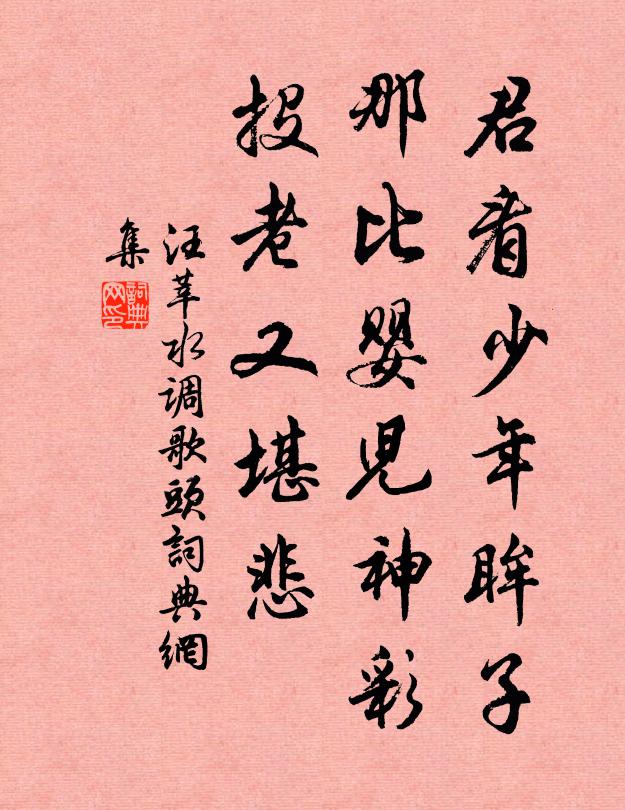 君看少年眸子
那比婴児神彩
投老又堪悲
汪莘水调歌頭詞典網
集
詞典
网印